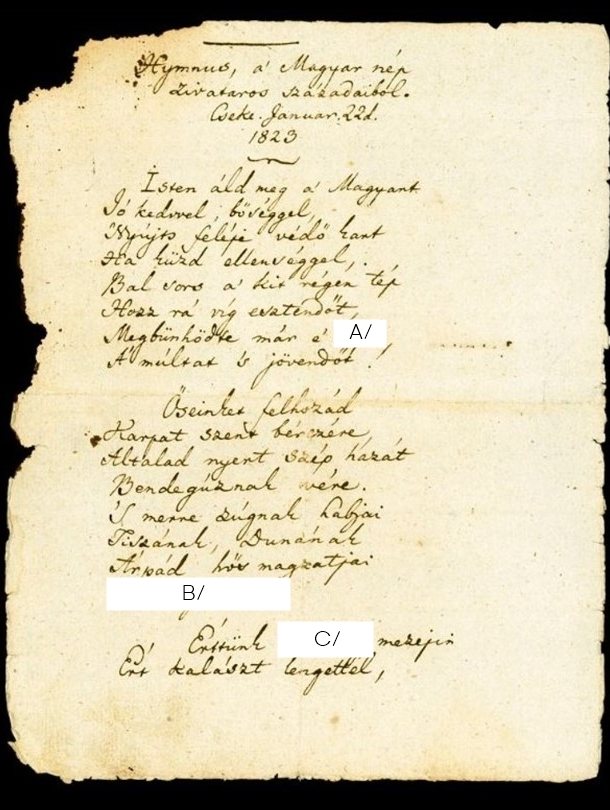 Hymnus, a' Magyar nép
zivataros századaiból.
Cseke. Januar. 22d.
1823
Isten áld meg a' Magyart
Jó kedvvel, bőséggel,
Nyújts feléje védő kart
Ha küzd ellenséggel,
Bal sors a' kit régen tép
Hozz rá víg esztendőt,
Megbűnhödte már é A/
A' múltat 's jövendőt!
Őseinket felhozád
Kárpát szent bérczére
Általad nyert szép hazát
Bendegúznak vére.
'S merre zúgnak habjai
Tiszának, Dunának
Árpád hős magzatjai
B/
Értünk C/ mezejin
Ért kalászt lengettél,